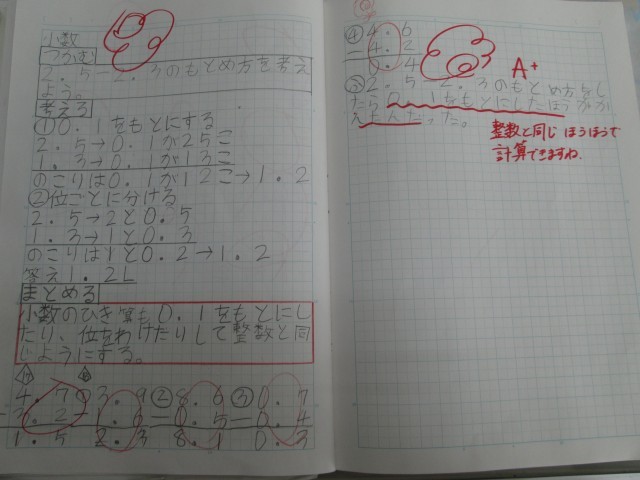 小数
つかむ
2.5-2.3のもとめ方を考え
よう。
考えろ
①0.1をもとにする
2.5→0.1が25こ
1.3→0.1が13こ
のこりは0.1が12こ→1.2
②位ごとに分ける
2.5→2と0.5
1.3→1と0.3
のこりは1と0.2→1.2
答え1.2L
まとめる
小数のひき算も0.1をもとにし
たり、位をわけたりして整数と同
じようにする。
4.7 3.9 ②8.6 ③0.7
-1.6 -0.5 -0.4
1.5 2.3 8.1 0.3
④4.6
-4.2
0.4
2.5-2.3のもとめ方をし
たら0.1をもとにしたほうがか
んたんだった。
A+
整数と同じほうほうで
計算できますね。